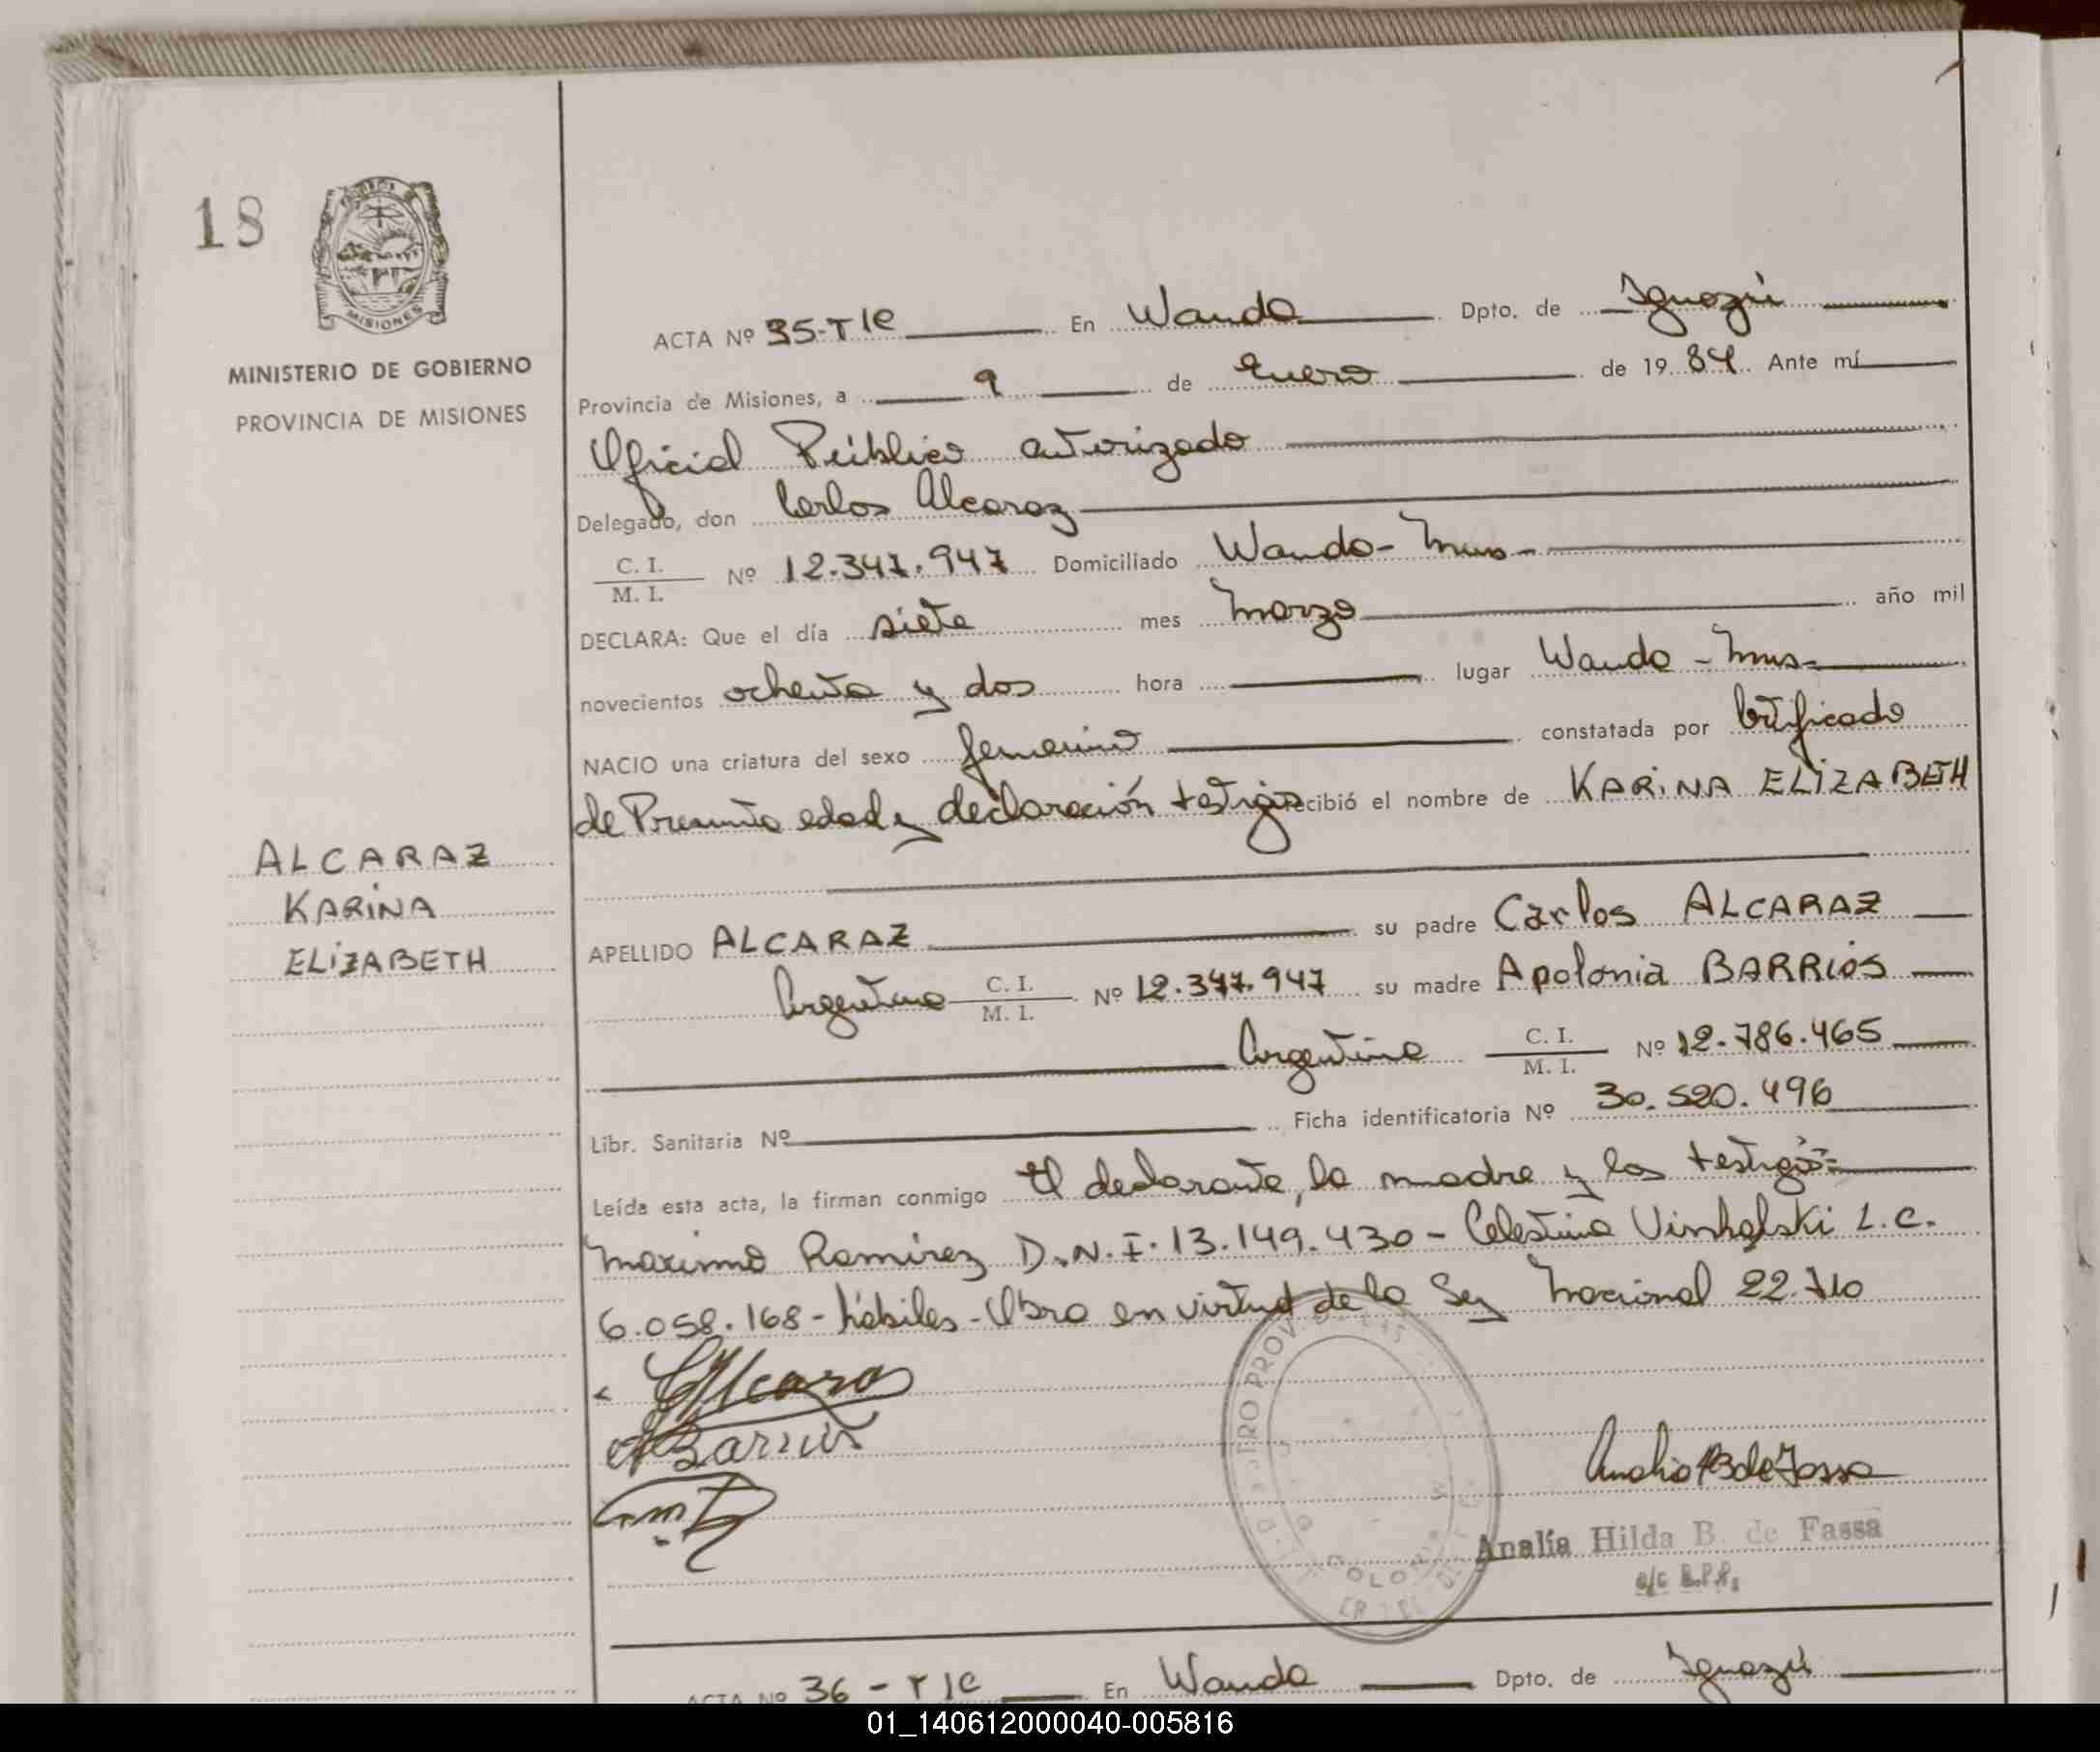 18
MISIONES
MINISTERIO DE GOBIERNO
PROVINCIA DE MISIONES
ALCARAZ
KARINA
ELIZABETH
ACTA Nº 35-T1C En Wanda Dpto. de Iguazú
Provincia de Misiones, a 9 de Enero de 1984. Ante mí
Oficial Público autorizado
Delegado, don Carlos Alcaraz
C. I. / M. I. Nº 12.347.947 Domiciliado Wanda - Mnes -
DECLARA: Que el día siete mes marzo año mil
novecientos ochenta y dos hora lugar Wanda - Mnes -
NACIO una criatura del sexo femenino constatada por Certificado
de Presunta edad y declaración testigos recibió el nombre de KARINA ELIZABETH
APELLIDO ALCARAZ su padre Carlos ALCARAZ
Argentino C. I. / M. I. Nº 12.347.947 su madre Apolonia BARRIOS
Argentina C. I. / M. I. Nº 12.786.465
Libr. Sanitaria Nº Ficha identificatoria Nº 30.520.496
Leída esta acta, la firman conmigo El declarante, la madre y los testigos=
Maximo Ramirez D.N.I. 13.149.430 - Celestina L.C.
6.058.168 - hábiles - Obro en virtud de la Ley Nacional 22.710
CAlcaraz
ABarrios
Analia HB de Fassa
Analía Hilda B. de Fassa
ACTA Nº 36 - T1C En Wanda Dpto. de Iguazú
01_140612000040-005816